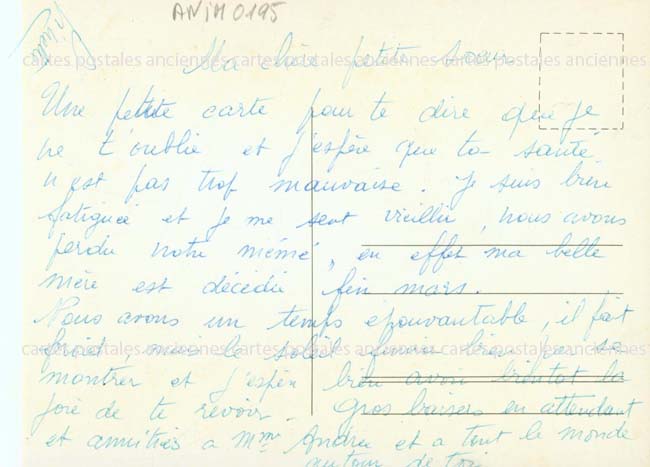 ANIM0195
cartes postales anciennes cartes postales anciennes cartes postales anciennes
Ma chère petite soeur
Une petite carte pour te dire que je
ne t'oublie et j'espère que ta santé
n'est pas trop mauvaise. Je suis bien
fatiguée et je me sent vieillir, nous avons
perdu notre mémé, en effet ma belle
mère est décédée fin mars.
Nous avons un temps epouvantable, il fait
froid mais le soleil bien se
cartes postales anciennes cartes postales anciennes cartes postales anciennes
montrer et j'espère bien avoir bientot la
joie de te revoir. Gros baisers en attendant
et amitiés a Mme Andrée et a tout le monde
autour de toi